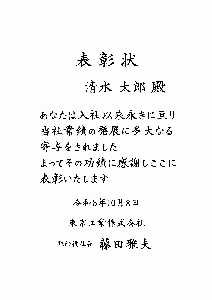 表彰状
清水 太郎 殿
あなたは入社以来永きに亘り
当社業績の発展に多大なる
寄与をされました
よってその功績に感謝しここに
表彰いたします
令和8年10月8日
東京工業株式会社
代表取締役社長 藤田雅夫